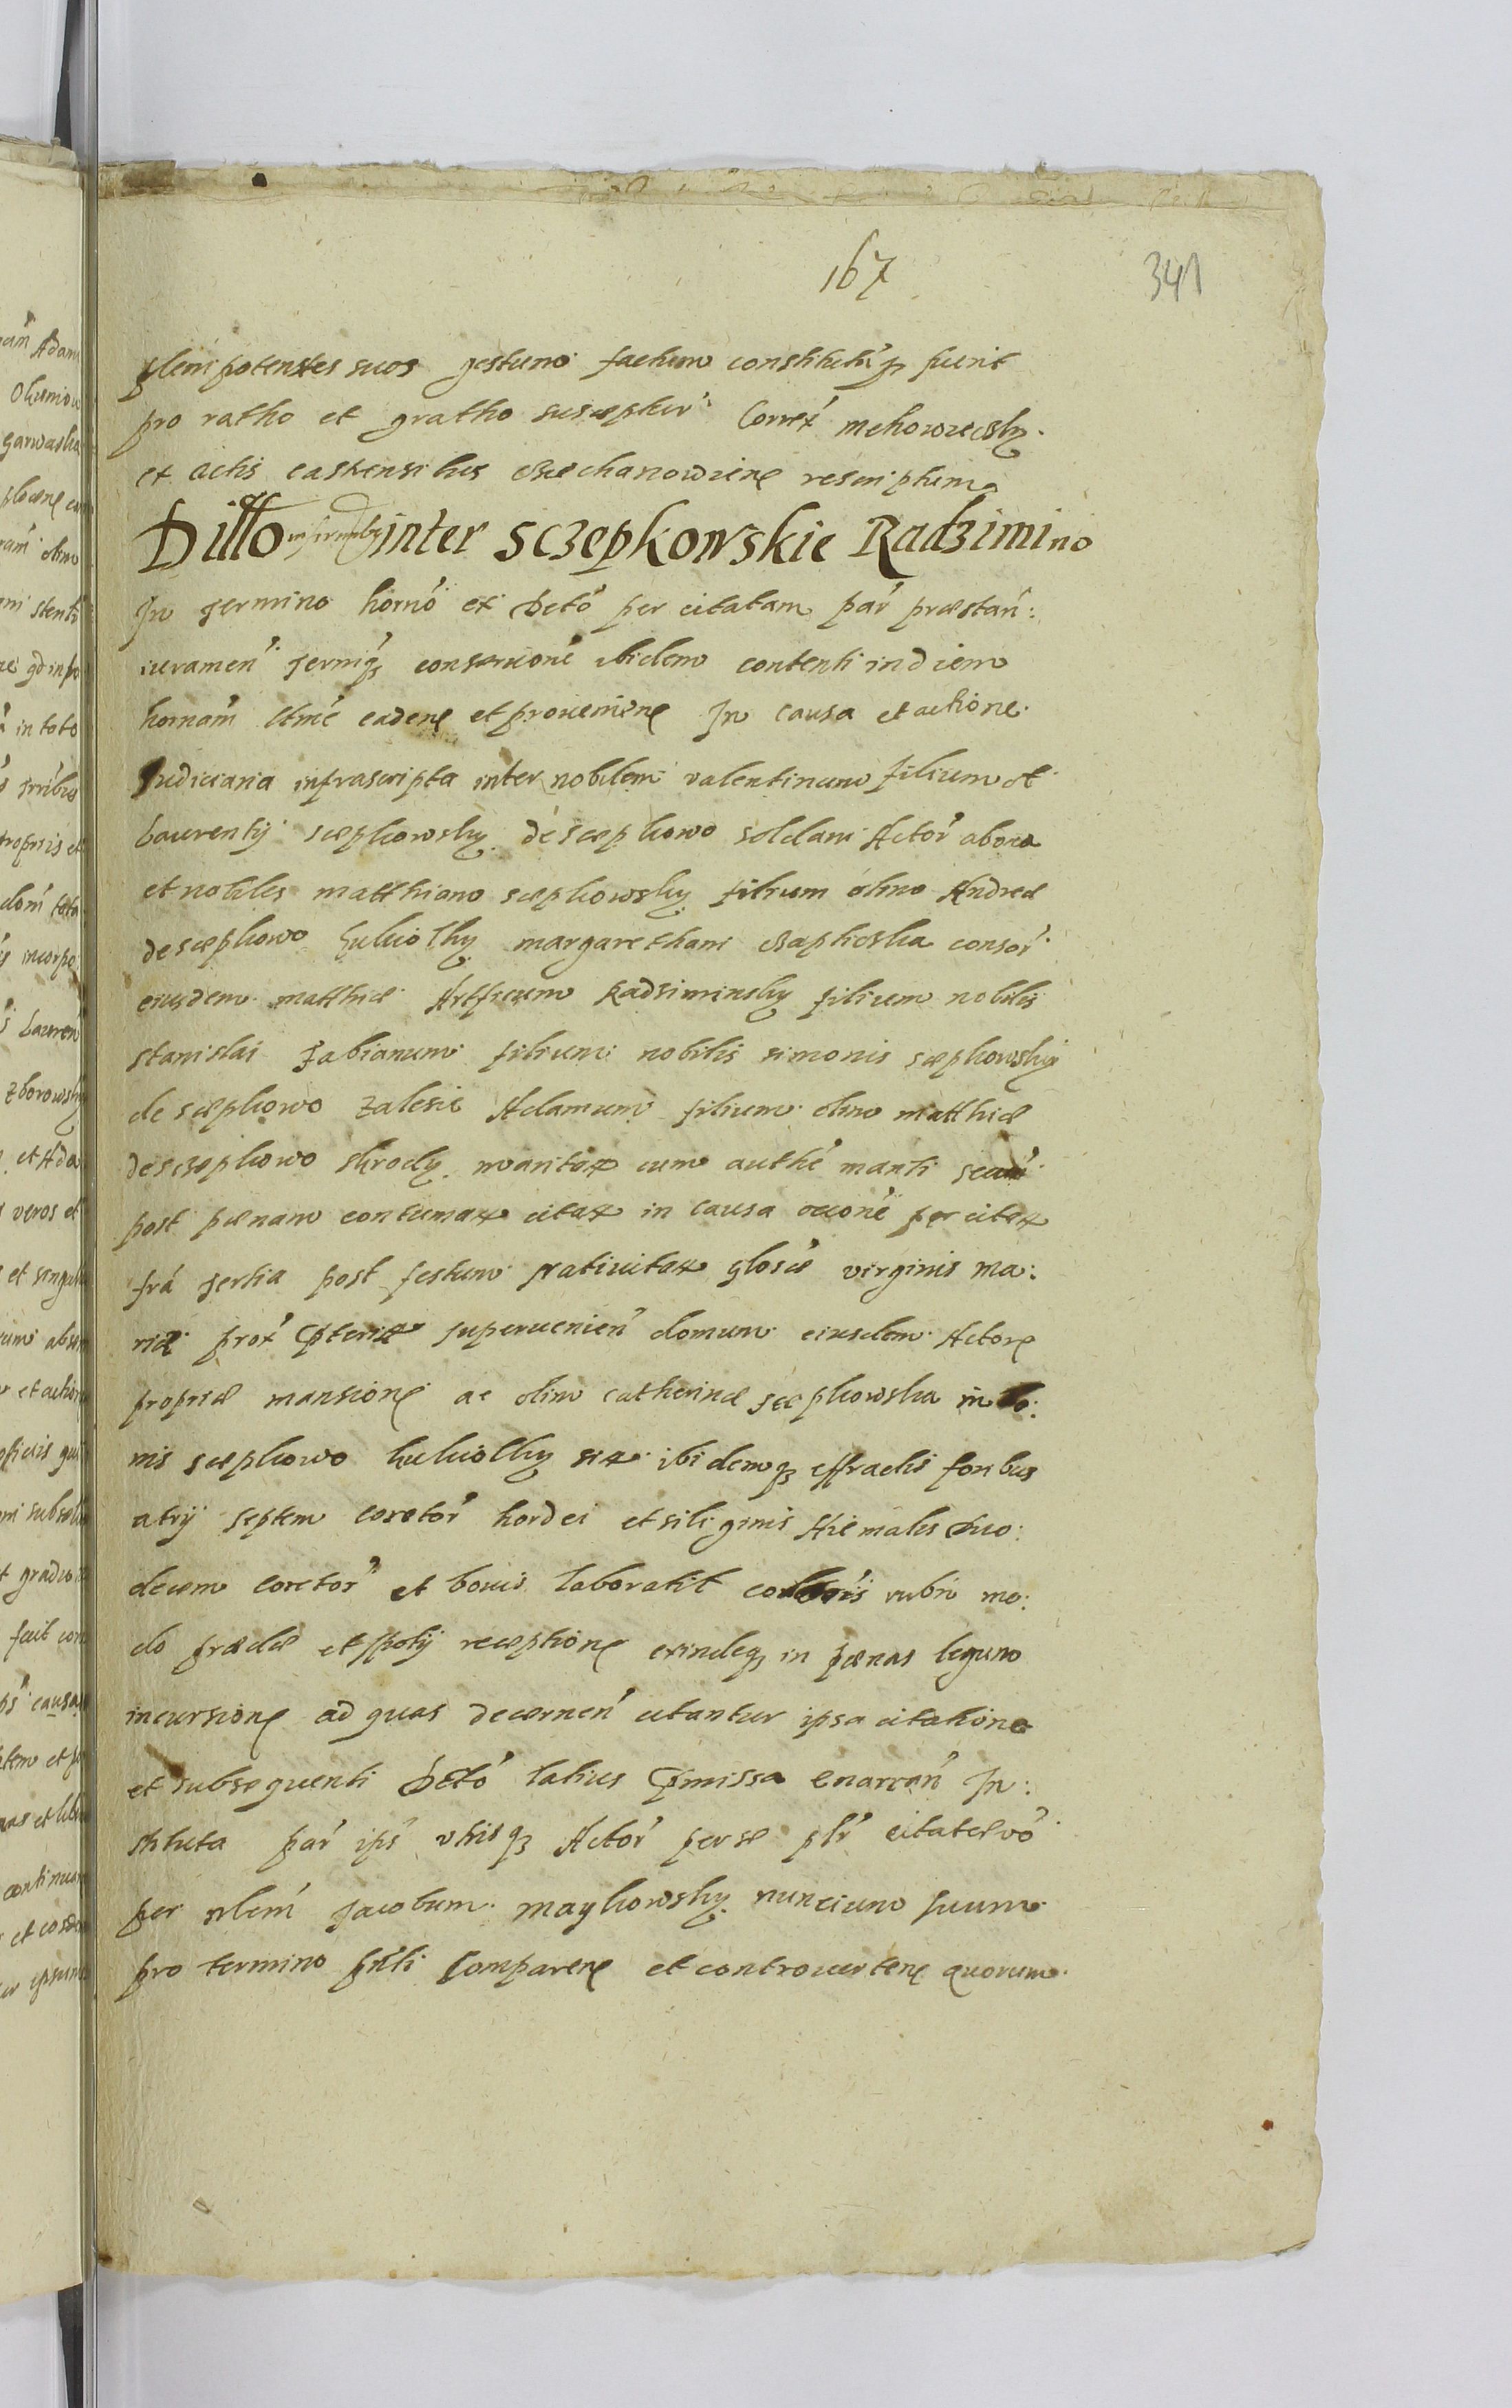 167
341
plenipotentes suos gestum factum constitutūqȝ fuerit
pro ratho et gratho susceptur' Correx' mchowieczky
ex actis castrensibus Czechanowien̄ rescriptum
Ditto inter Sczepkowskie Radzimino
In termino horno' ex Decto' per citatam par' præstan':
iuramen' termiqȝ conseruone' ibidem contenti in diem
hornam' lt'me' caden̄ et provenien̄ In causa et actione
Judiciaria infrascripta inter nobilem valentinum filium ol
Laurentij sczepkowsky de sczepkowo soldani Actor' ab vna
et nobiles matthiam sczepkowsky filium olim Andreæ
de sczepkowo kukiolky margaretham Czaplicska consor'
eiusdem matthiæ Adricum Radziminsky filium nobilis
stanislai Fabianum filium nobilis simonis sczepkowsky
de sczepkowo zalesie Adamum filium olim matthiæ
de sczepkowo skrody maritat cum authe' mariti
post pænam contumat citat in causa occione' per citat
fra' tertia post festum Natiuitat glo'sæ virginis ma:
riæ prox' pterit superuenien' domum eiusdem Actor̄
propriæ mansion̄ ac olim catherinæ sczepkowska in bo:
nis sczepkowo kukiolky sit ibidemqȝ effractis foribus
atrij septem coretor' hordei et siliginis Hiemalis duo:
decem coretor' et bouis laboratil coloris rubri mo:
do prædæ et spolij reception̄ exindeqȝ in pænas legum
incursion̄ ad quas decernen' citantur ipsa citatione
et subsequenti Decto' latius pmissa enarran' In:
stituta par' ips' vtrisqȝ Actor' per se plr' citatæ vo'
per nlem' Jacobum maykowsky nuncium suum
pro termino pn'ti comparen̄ et controuerten̄ quorum